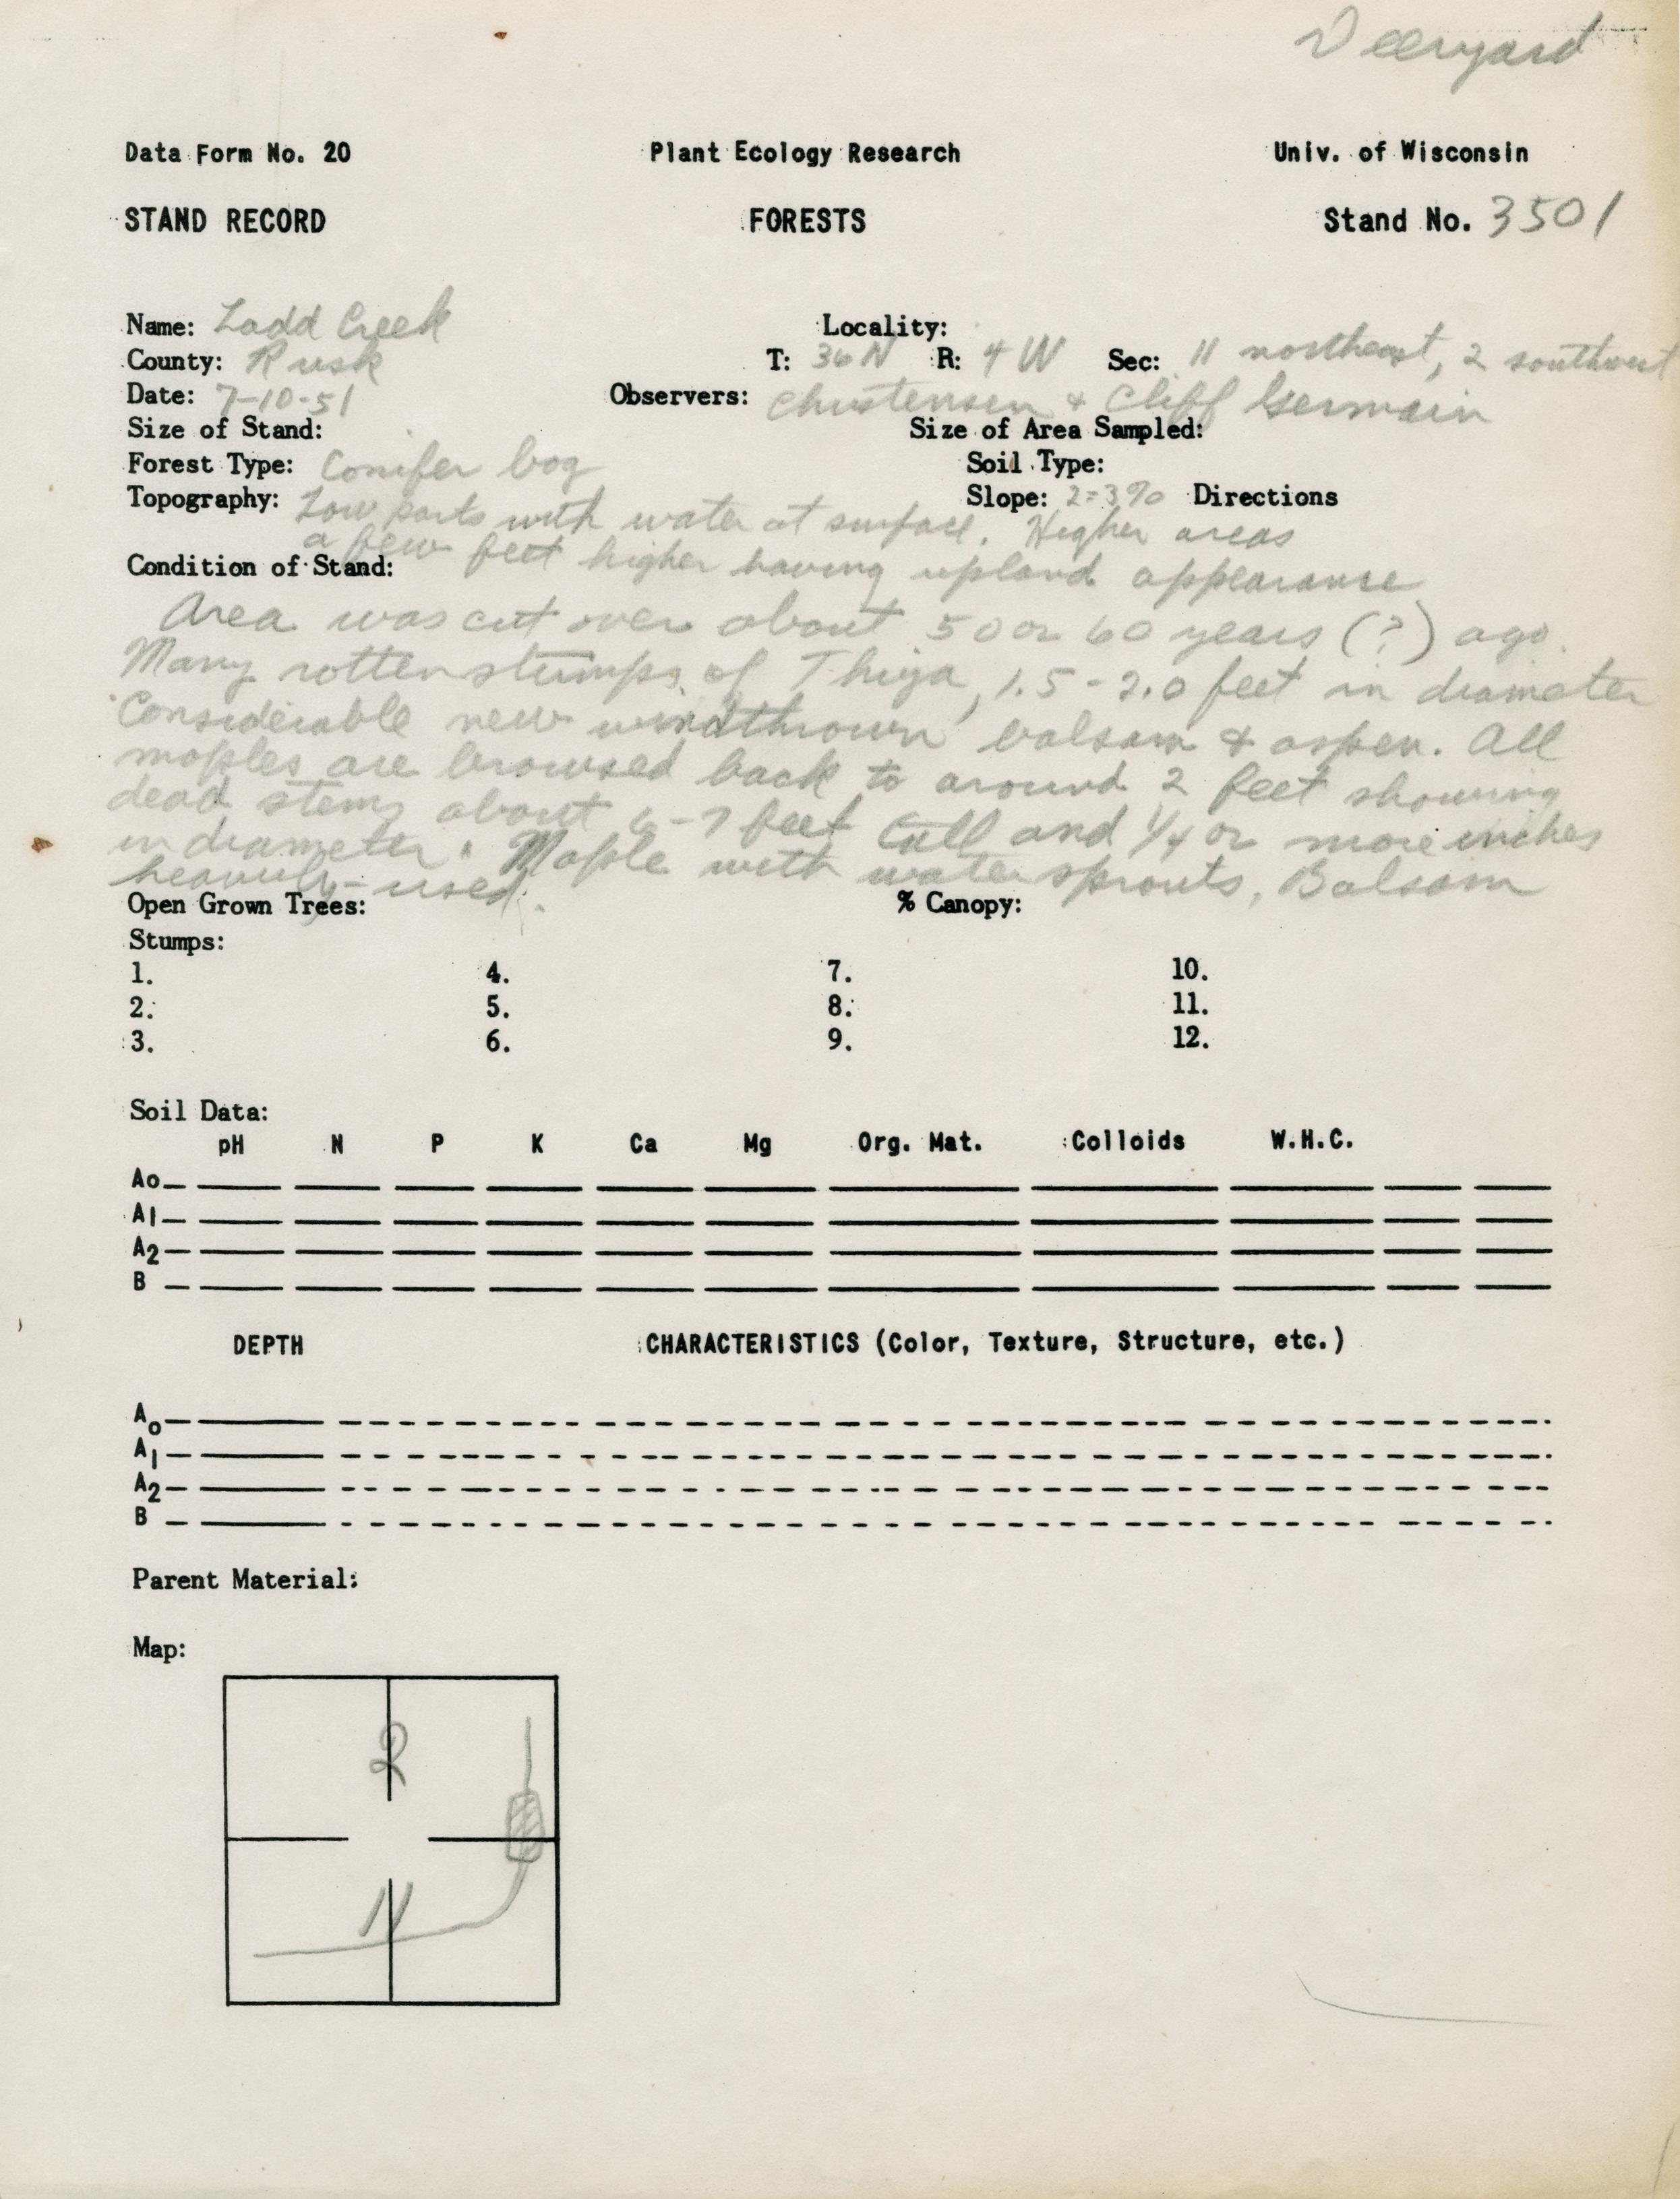 Deeryard
Data Form No. 20 Plant Ecology Research Univ. of Wisconsin
STAND RECORD FORESTS Stand No. 3501
Name: Ladd Creek Locality:
County: Rusk T: 36N R: 4W Sec: 11 northeast, 2 southwest
Date: 7-10-51 Observers: Christensen & Cliff Germain
Size of Stand: Size of Area Sampled:
Forest Type: Conifer bog Soil Type:
Topography: Low parts with water at surface. Higher areas Slope: 2-3% Directions
a few feet higher having upland appearance
Condition of Stand:
Area was cut over about 50 or 60 years (?) ago.
Many rotten stumps of Thuja, 1.5-2.0 feet in diameter
Considerable new windthrown balsam & aspen. All
maples are browsed back to around 2 feet showing
dead stems about 6-7 feet tall and 1/4 or more inches
in diameter. Maple with water sprouts, Balsam
heavily-used.
Open Grown Trees: % Canopy:
Stumps:
1. 4. 7. 10.
2. 5. 8. 11.
3. 6. 9. 12.
Soil Data:
pH N P K Ca Mg Org. Mat. Colloids W.H.C.
Ao
A1
A2
B
DEPTH CHARACTERISTICS (Color, Texture, Structure, etc.)
Ao
A1
A2
B
Parent Material:
Map:
2
11